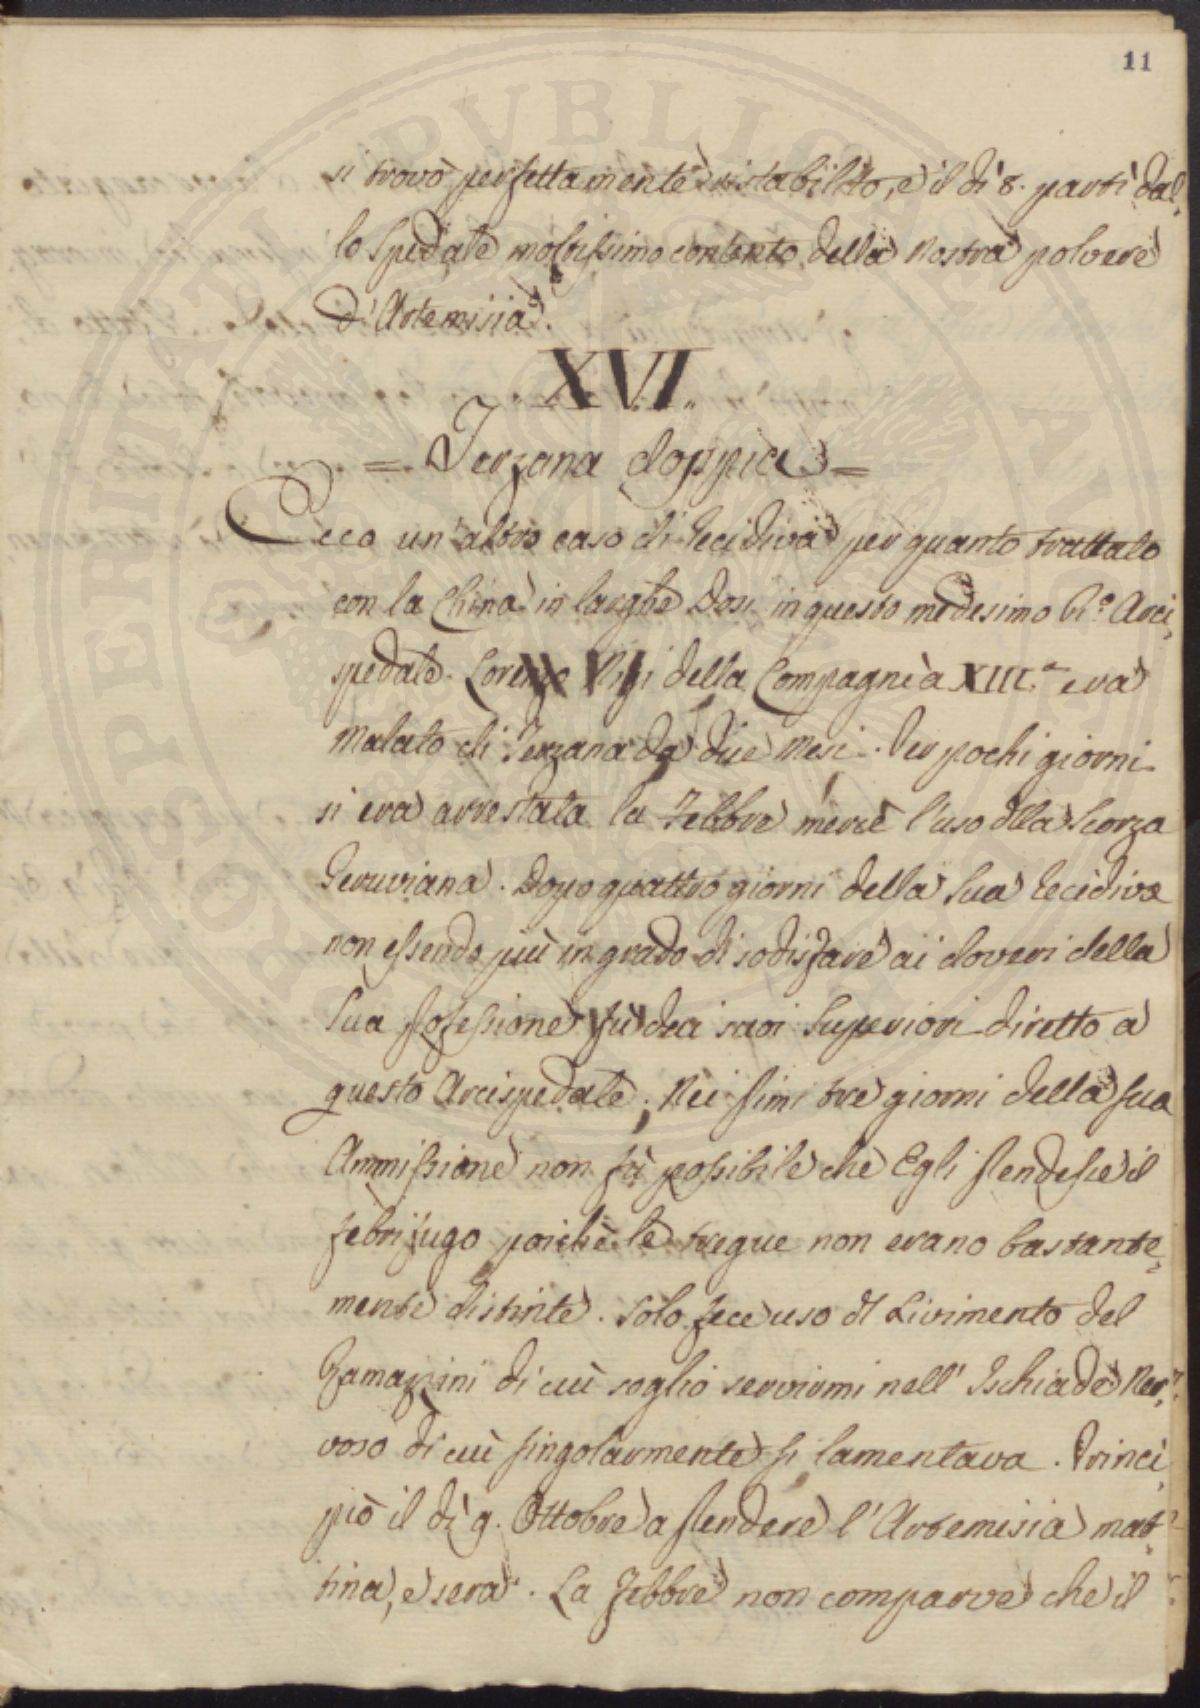 11
si trovò perfettamente ristabilito, e il dì 8. partì dal,
lo Spedale moltissimo contento della Nostra polvere
d'Artemisia.
XVI.
= Terzana doppia =
Ecco un'altro caso di Recidiva per quanto trattato
con la China in larghe Dosi in questo medesimo R.o Arci,
spedale. Lorenzo Vigi della Compagnia XIII.a era
Malato di Terzana da due Mesi. Per pochi giorni
si era arrestata la Febbre mercè l'uso dlla Scorza
Peruviana. Dopo quattro giorni della Sua Recidiva
non essendo più in grado di sodisfare ai doveri della
Sua Pofessione fù dai suoi Superiori diretto a
questo Arcispedale; Nei Pimi tre giorni della sua
Ammissione non fù possibile che Egli Pendesse il
febrifugo poichè le tregue non erano bastante,
mente distinte. Solo fece uso dl Livimento del
Ramazzini di cui soglio servirmi nell'Ischiade Ner,
voso di cui singolarmente si lamentava. Princi,
piò il dì 9. Ottobre a Pendere l'Artemisia mat,
tina, e sera. La Febbre non comparve che il